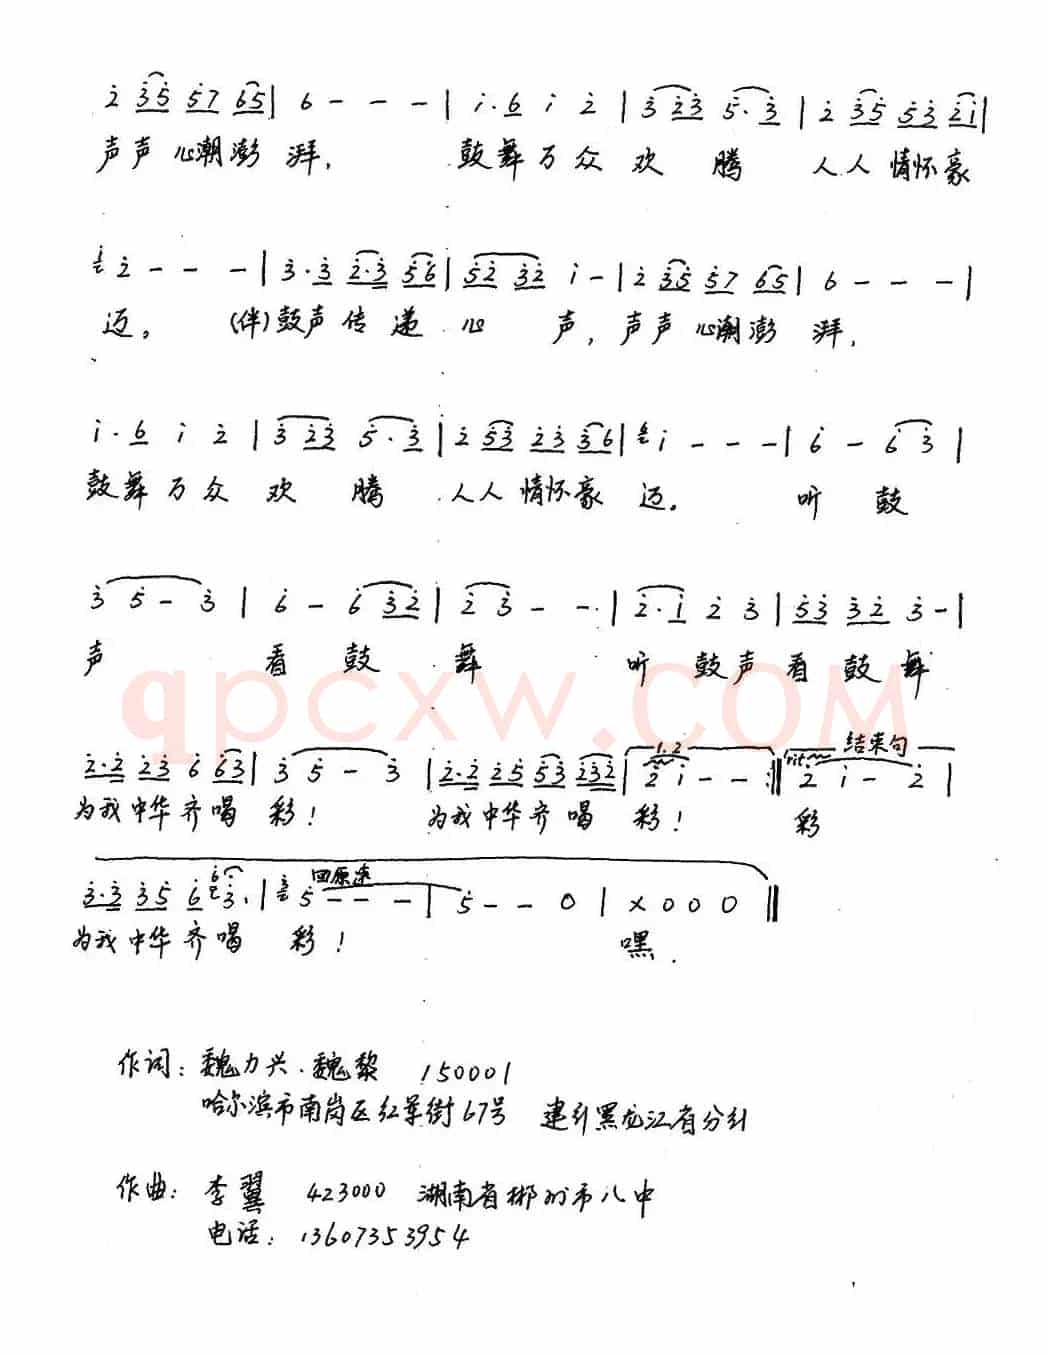 2 35 57 65 | 6 - - - | i. 6 i 2 | 3 23 5. 3 | 2 35 53 2i |
声声心潮澎湃, 鼓舞万众欢腾 人人情怀豪
2 - - - | 3. 3 2. 3 56 | 52 32 i - | 2 35 57 65 | 6 - - - |
迈。 (伴)鼓声传递心声, 声声心潮澎湃,
i. 6 i 2 | 3 23 5. 3 | 2 53 23 36 | 6 i - - - | 6 - 6 3 |
鼓舞万众欢腾 人人情怀豪迈。 听鼓
3 5 - 3 | 6 - 6 32 | 2 3 - - | 2. i 2 3 | 53 32 3 - |
声 看鼓舞 听鼓声看鼓舞
qpcxw.COM
1.2 rit 结束句
2. 2 23 6 63 | 3 5 - 3 | 2. 2 25 53 232 | 2 i - - :|| 2 i - 2 |
为我中华齐喝彩! 为我中华齐喝彩! 彩
回原速
3. 3 35 6 6 3. | 3 5 - - - | 5 - - 0 | x 0 0 0 ||
为我中华齐喝彩! 嘿.
作词: 魏力兴.魏黎 150001
哈尔滨市南岗区红军街67号 建行黑龙江省分行
作曲: 李翼 423000 湖南省郴州市八中
电话: 13607353954